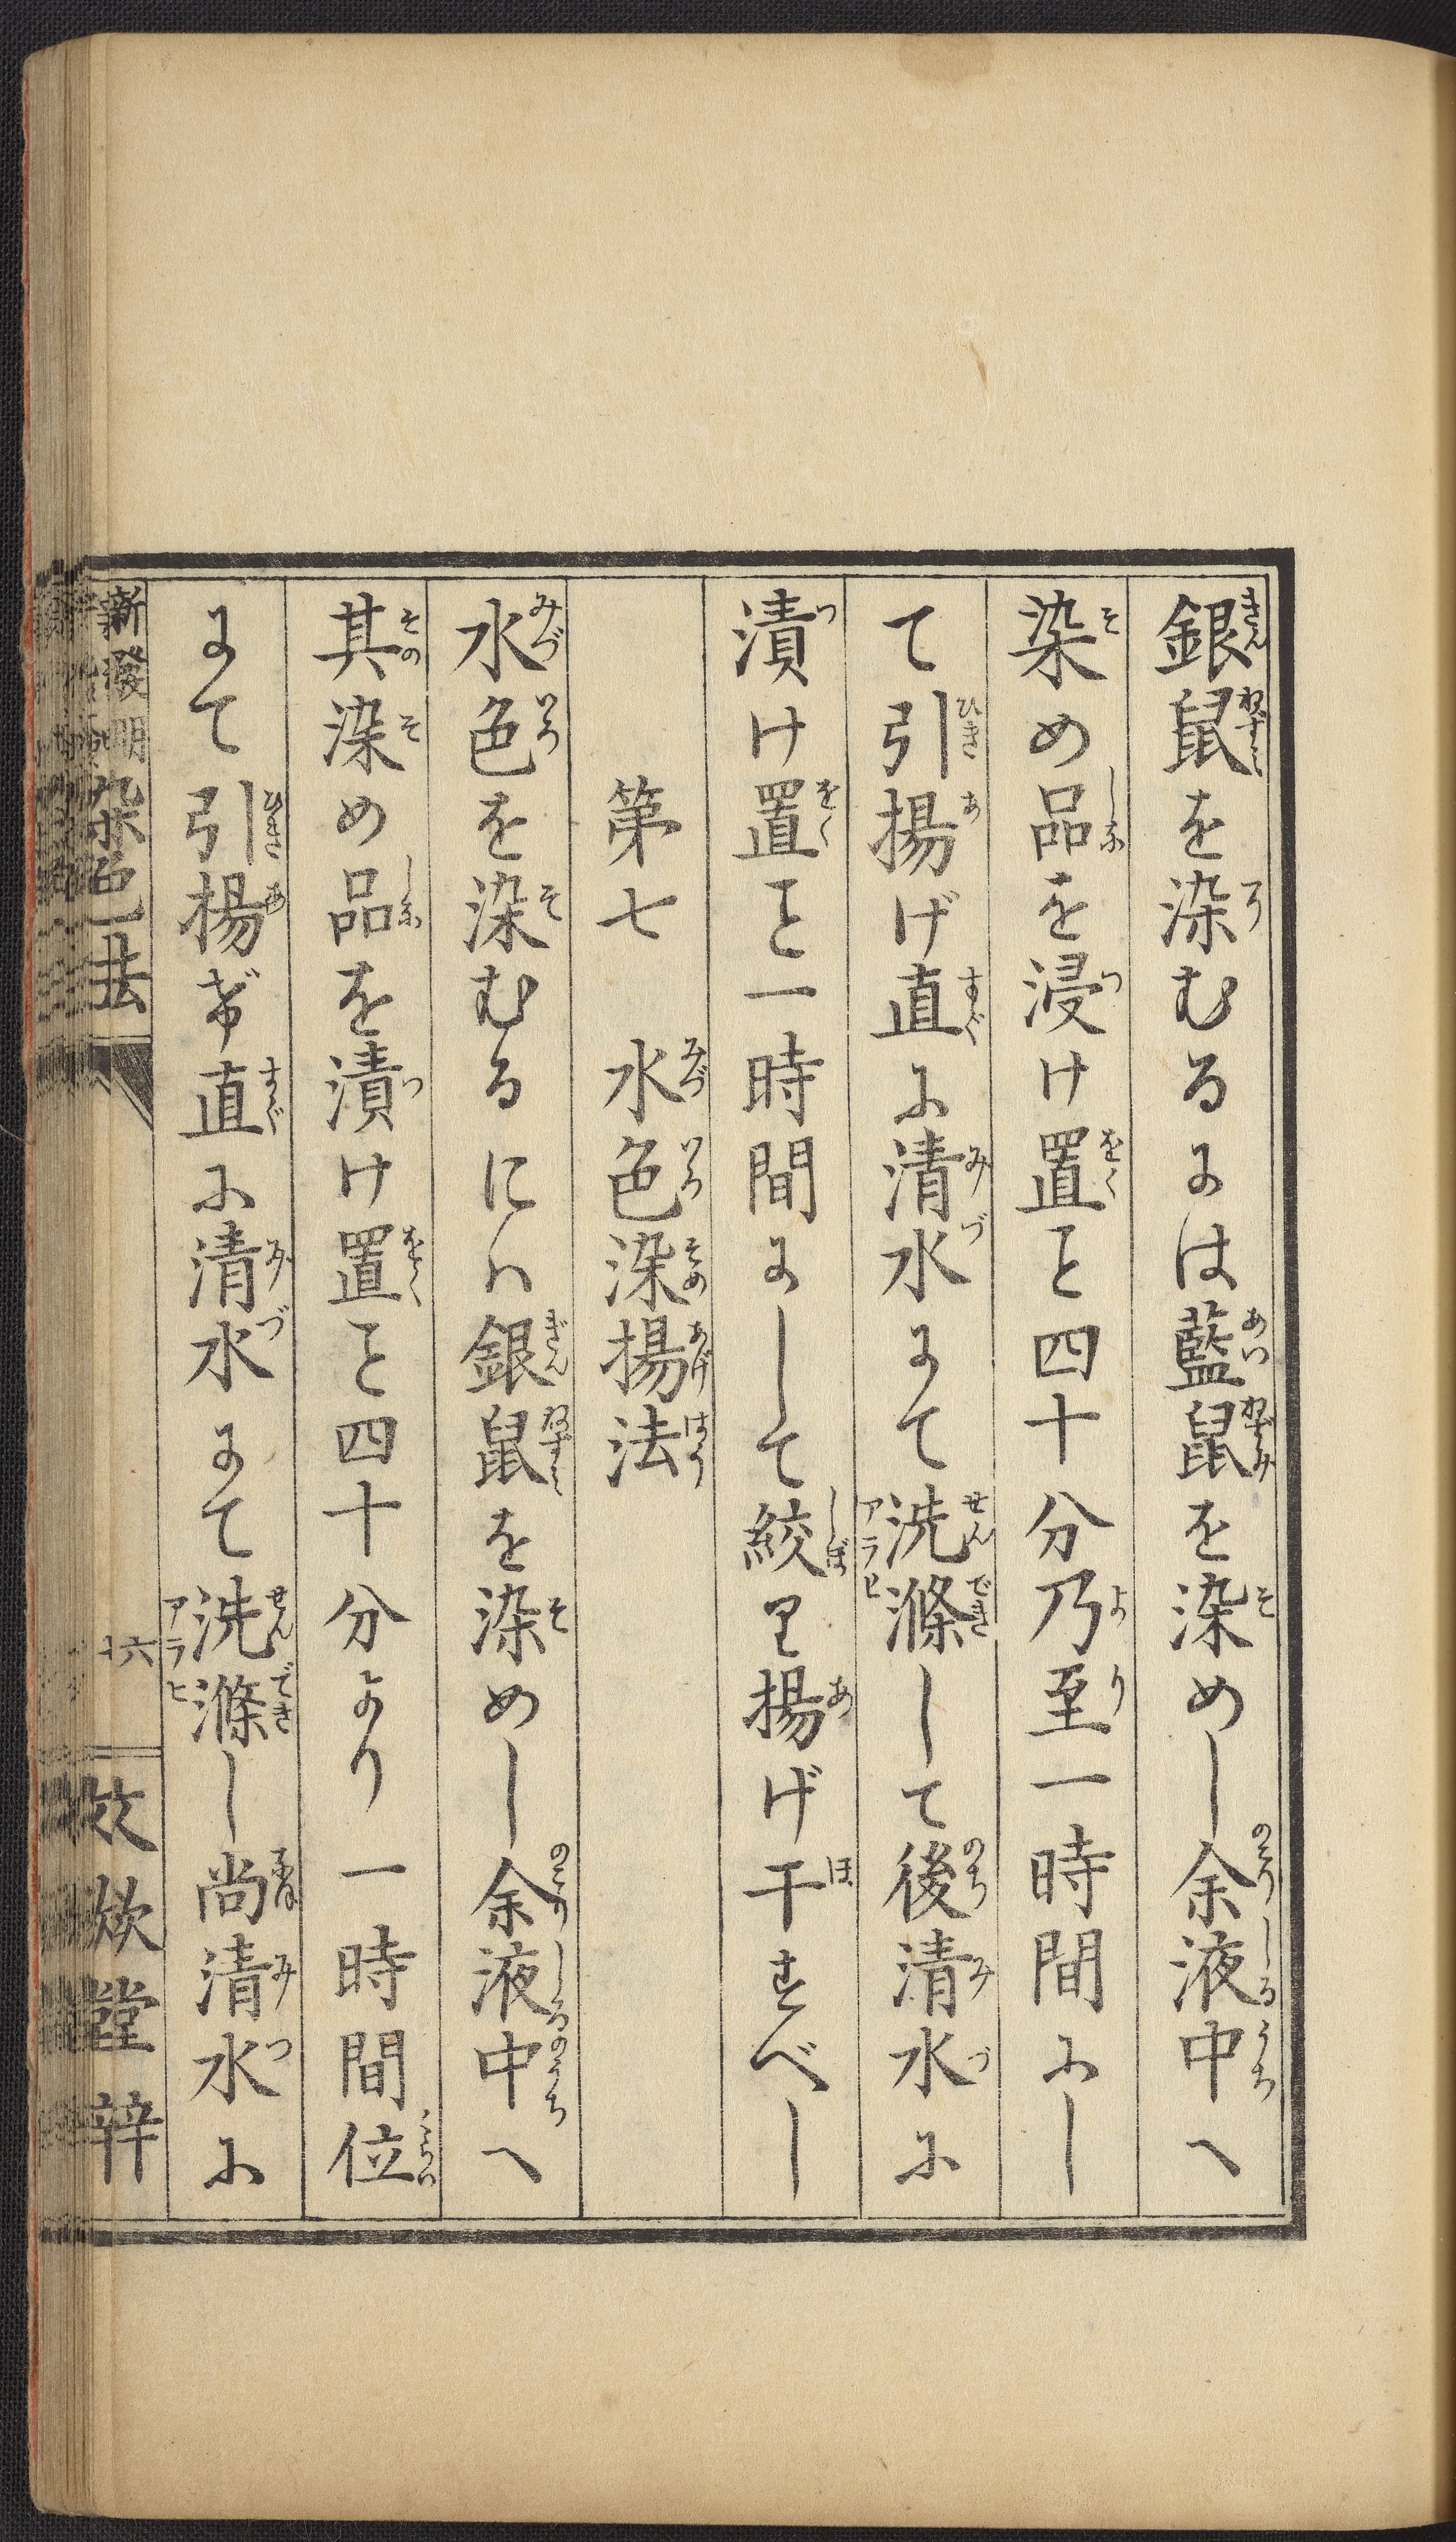 銀鼠を染むるには藍鼠を染めし余液中へ
染め品を浸け置ヿ四十分乃至一時間にし
て引揚げ直に清水にて洗滌して後清水に
漬け置ヿ一時間にして絞り揚げ干すべし
第七　水色染揚法
水色を染むるにハ銀鼠を染めし余液中へ
其染め品を漬け置ヿ四十分より一時間位
にて引揚げ直に清水にて洗滌し尚清水に
新發明染色法
十六